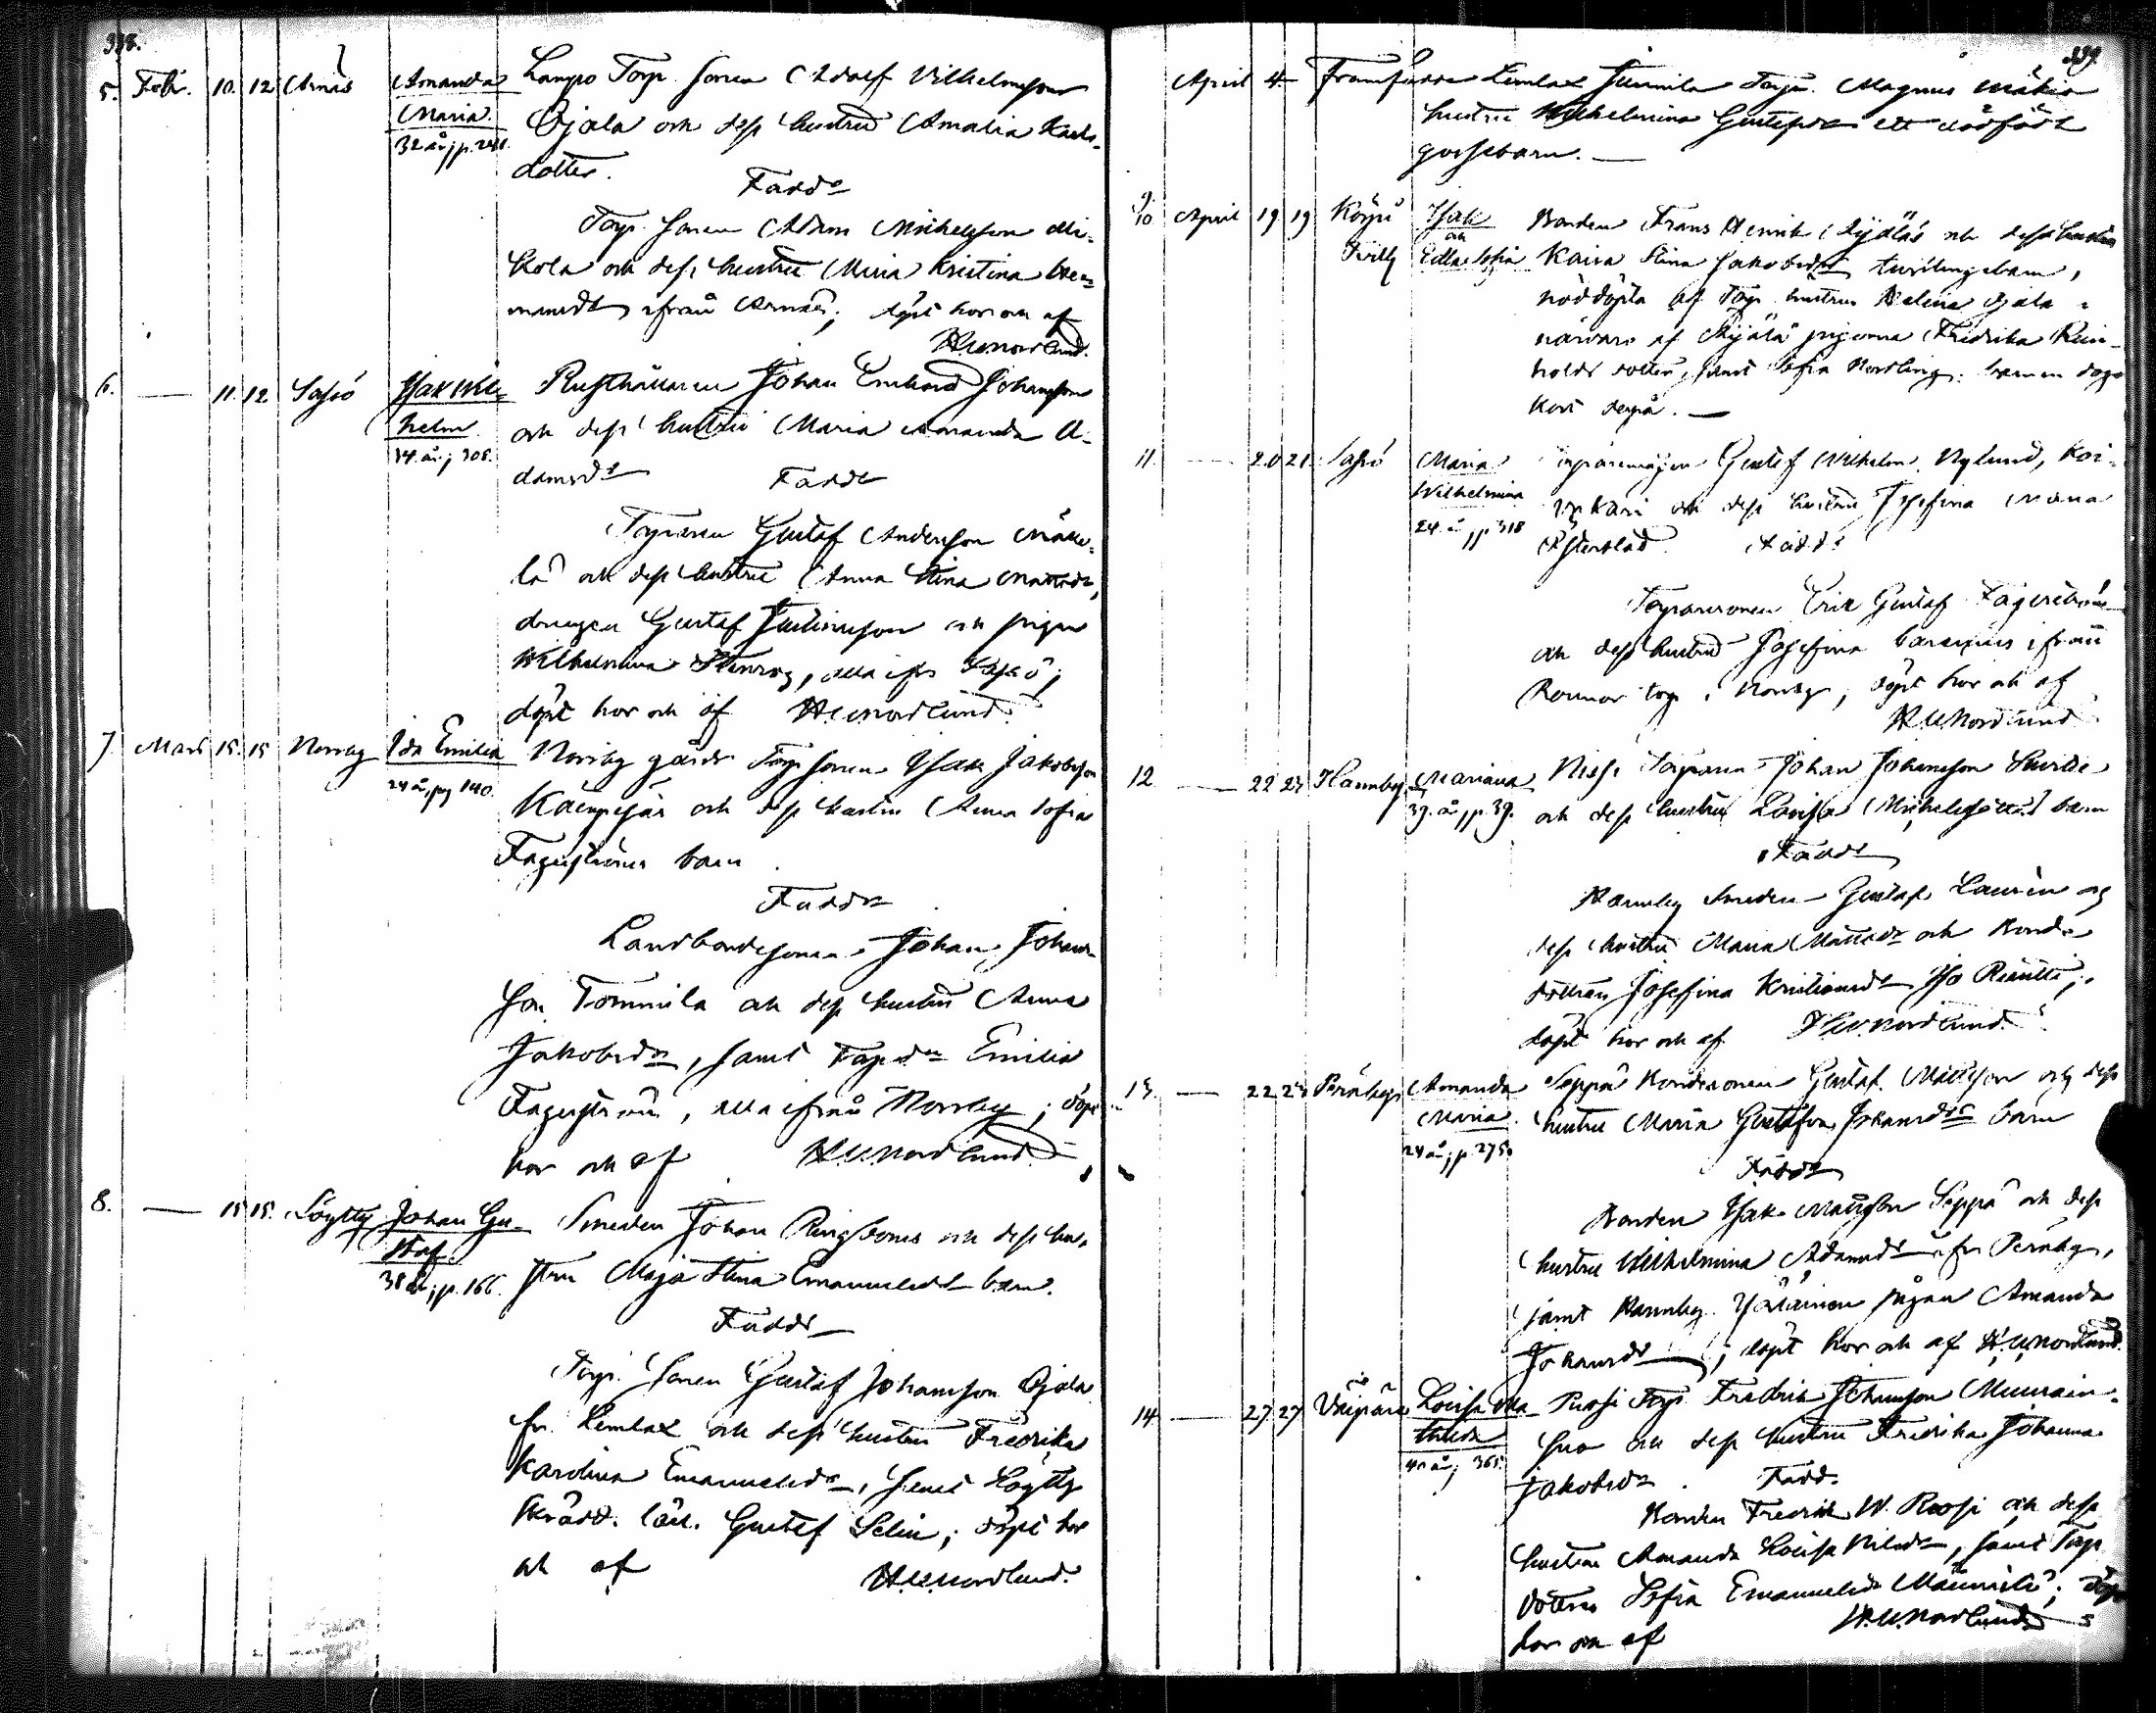 338.
5. Febr. 10. 12 Arnäs Amanda Maria. 32 år; p.
Lampo Torp. sonen Adolf Vilhelmsson
Ojala och dess hustru Amalia Karls-
dotter.
Fadd.
Torp. sonen Adam Michelsson Mi-
kola och dess hustru Maria Kristina
ifrån Arnäs; döpt hos och af
H.U. Nordlund.
6. — 11. 12 Sasjö Isak Wil-
helm 34. år; 305.
Rusthållaren Johan Enhard Johansson
och dess hustru Maria Amanda A-
damsdr
Fadd.
Torparen Gustaf Andersson Mäke-
lä och dess hustru Anna Stina Mattsdr,
drengen Gustaf Justinusson och pigan
Wilhelmina Stenroos, alla ifr. Sasjö;
döpt hos och af H.U. Nordlund.
7. Mars 15 15 Norrby Ida Emilia 24 år, pag 140.
Norrby gårds Torp. sonen Isak Jakobsson
och dess hustru Anna Sofia
Fagerströms barn
Fadd.
Landbondesonen Johan Johans-
son Tommila och dess hustru Anna
Jakobsdr, samt Torp. dr Emilia
Fagerström, alla ifrån Norrby; döpt
hos och af H.U. Nordlund.
8. — 15 15. Löytty Johan Gu-
staf 38 år; p. 166.
Smeden Johan Ringboms och dess hu-
stru Maja Stina Emanuelsdr barn.
Fadd.
Torp. sonen Gustaf Johansson Ojala
fr. Lemlax och dess hustru Fredrika
Karolina Emanuelsdr, samt Löytty
skrädd. lärl. Gustaf Selin; döpt hos
och af H.U. Nordlund.
339.
April 4. Framfödde Lemlax Junnila Torp. Magnus Mäkis
hustru Wilhelmina Gustafsdr ett dödfödt
gossebarn. —
9. 10 April 19 19 Körpi Isak och Edla Sofia
Bonden Frans Henrik och dess hustru
Kaisa Stina Jakobsdr tvillingebarn,
nöddöpta af Torp. hustrun Helena Ojala i
närvaro af pigorna Fredrika Rein-
holds dotter, samt Sofia Nordling. barnen dogo
kort derpå. —
11. — 20 21. Sasjö Maria Wilhelmina 24. år, p 318
Torparemågen Gustaf Wilhelm Nylund,
och dess hustru Josefina Maria
Österblad. Fadd.
Torparesonen Erik Gustaf Fagerström
och dess hustru Josefina ifrån
torp i Norrby; döpt hos och af
H.U. Nordlund
12 — 22 23 Hannby Mariana 39. år, p. 39.
Torparen Johan Johansson
och dess hustru Lovisa Michelsdotters barn
Fadd.
Hannby Smeden Gustaf Laurén och
dess hustru Maria Mattsdr och Bonde-
dottren Josefina Kristiansdr Iso Räntti;
döpt hos och af H.U. Nordlund.
13. — 22 23 Peräby Amanda Maria. 24 år; p. 275.
Seppä Bondesonen Gustaf Mattsson och dess
hustru Maria Gustafva Johansdr barn
Fadd.
Bonden Isak Mattsson Seppä och dess
hustru Wilhelmina Adamsdr ifr. Peräby,
samt Hannby pigan Amanda
Johansdr; döpt hos och af H.U. Nordlund.
14 — 27 27 Väipäre Lovisa Ma-
thilda 40 år; 365.
Torp. Fredrik Johansson
och dess hustru Fredrika Johanna
Jakobsdr. Fadd.
Bonden Fredrik W. och dess
hustru Amanda Lovisa Nilsdr, samt Torp
dottren Sofia Emanuelsdr; döpt
hos och af H.U. Nordlund